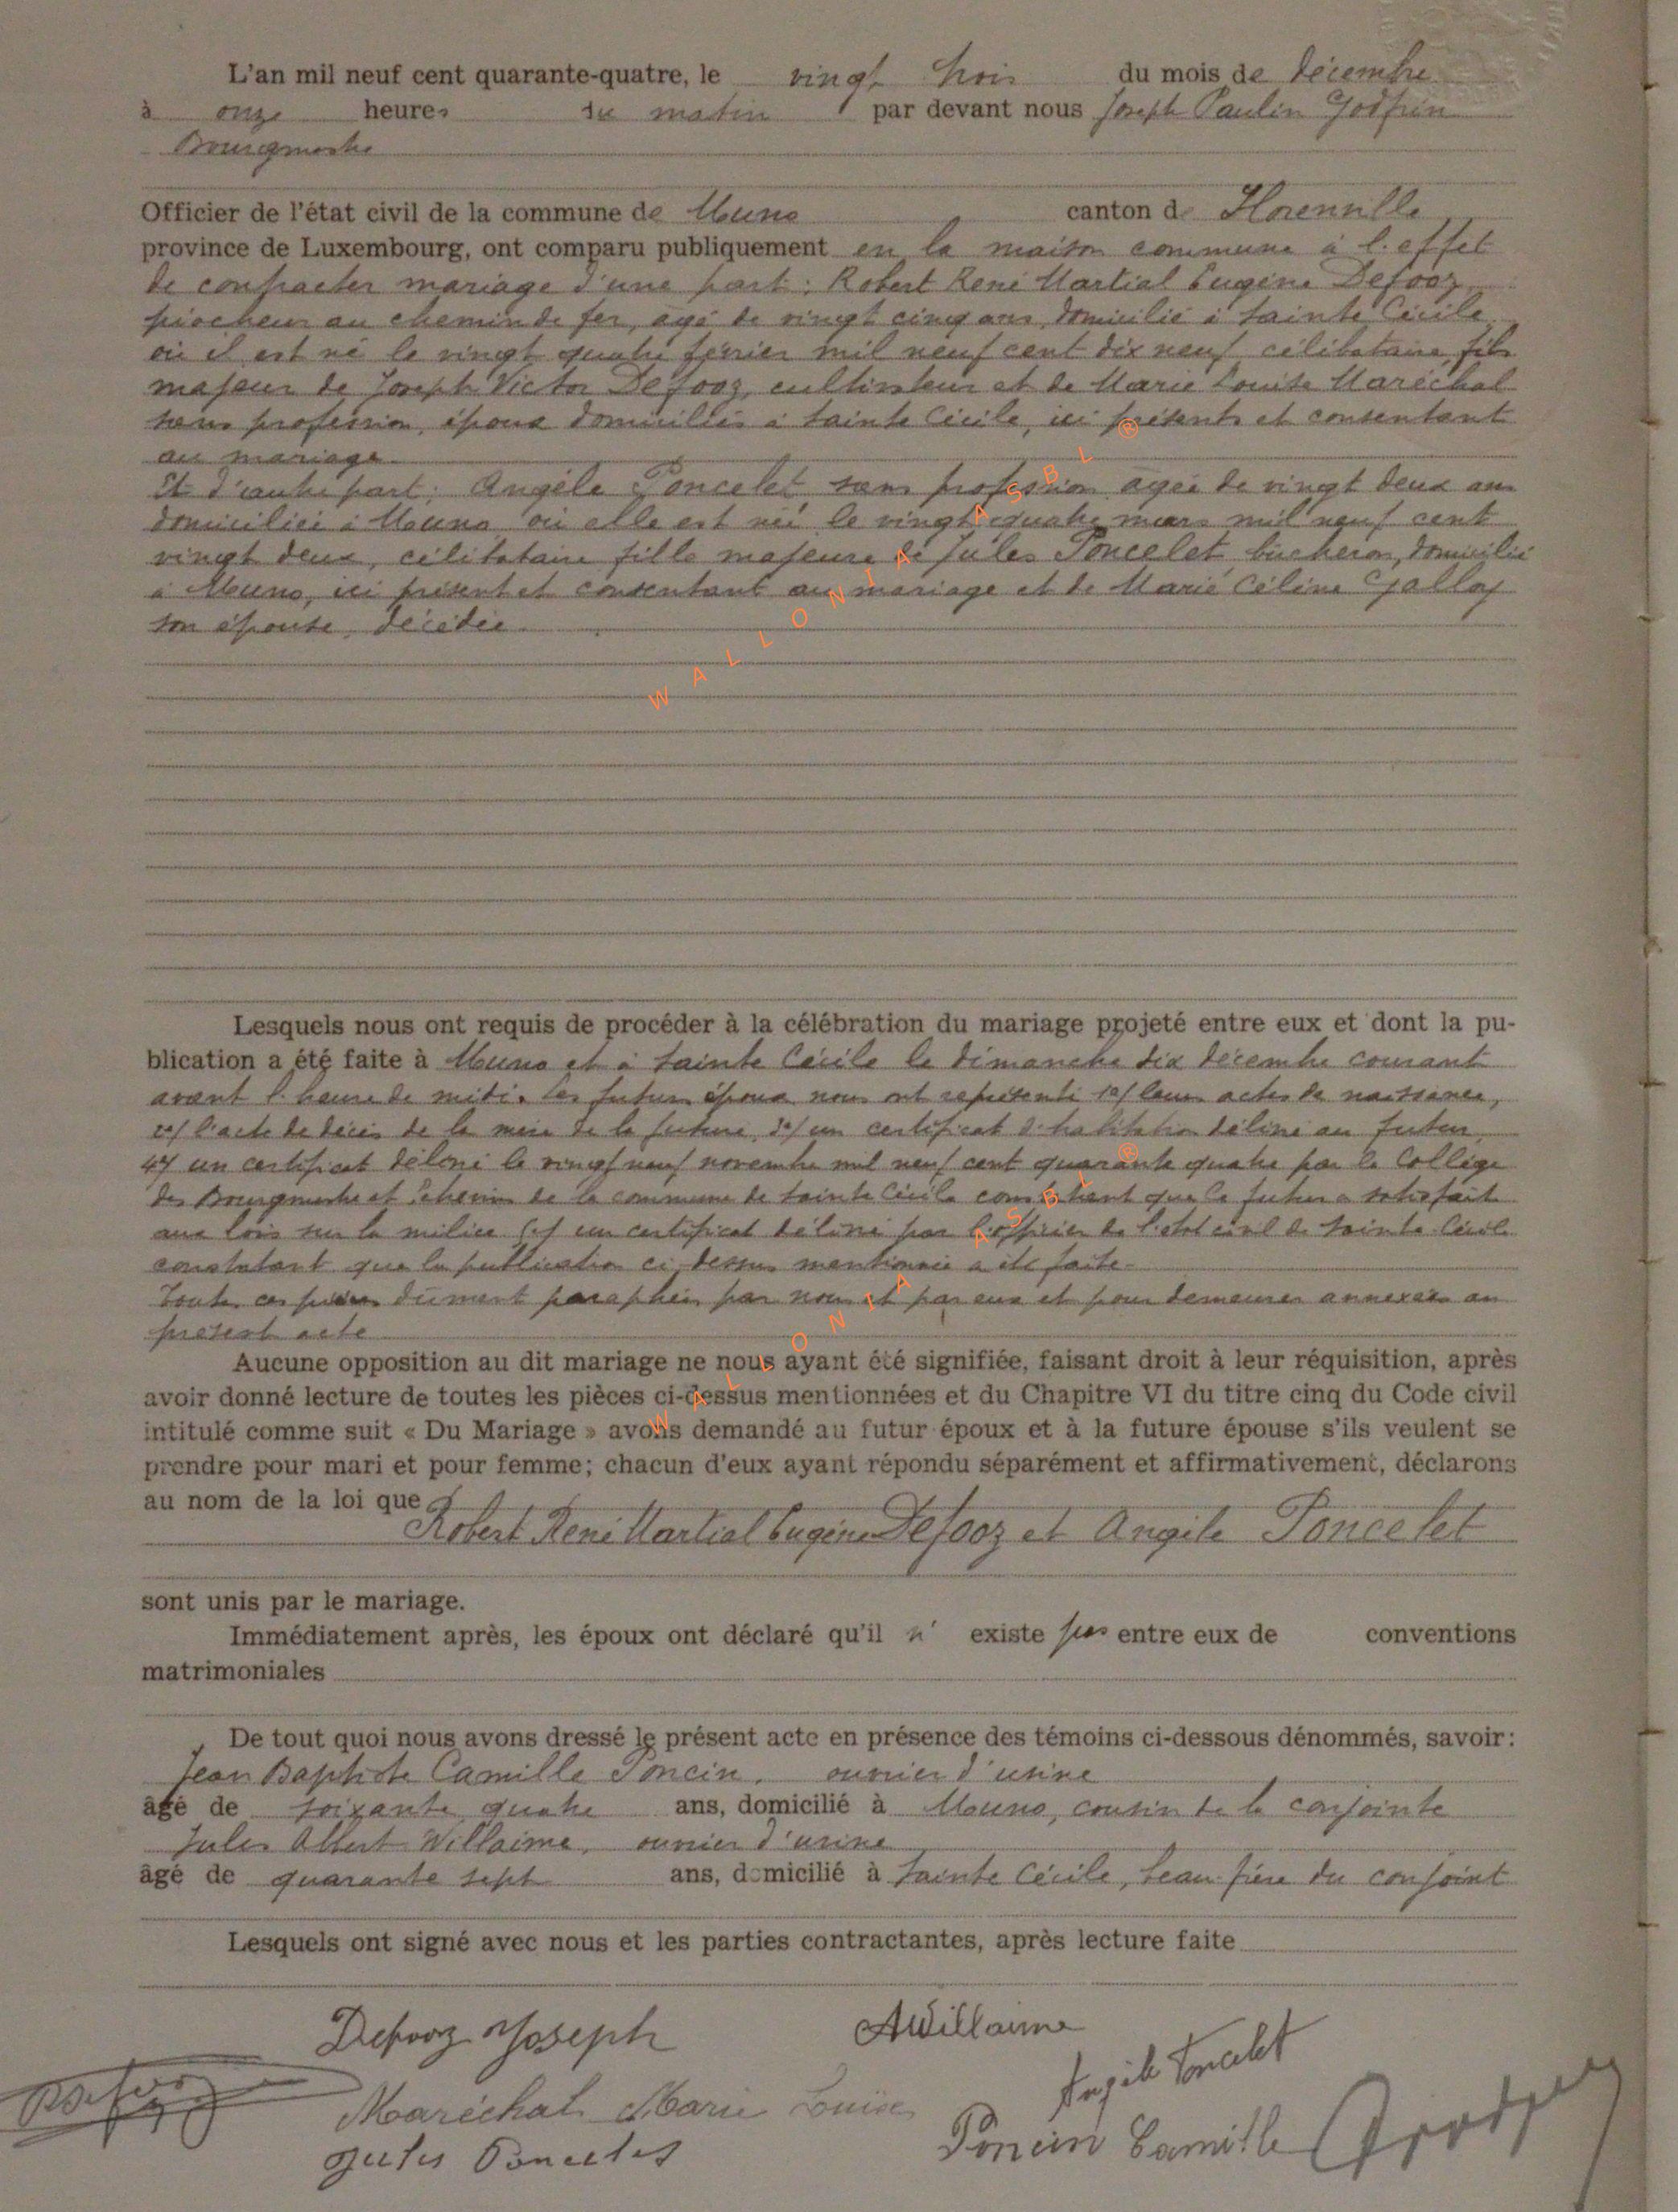 L'an mil neuf cent quarante-quatre, le vingt trois du mois de décembre
à onze heures du matin par devant nous Joseph Paulin Godfrin
Bourgmestre
Officier de l'état civil de la commune de Muno canton de Florenville
province de Luxembourg, ont comparu publiquement en la maison commune à l'effet
de contracter mariage d'une part : Robert René Martial Eugène Defooz,
piocheur au chemin de fer, agé de vingt cinq ans, domicilié à Sainte Cécile
où il est né le vingt quatre février mil neuf cent dix neuf, célibataire, fils
majeur de Joseph Victor Defooz, cultivateur et de Marie Louise Maréchal
sans profession, époux domiciliés à Sainte Cécile, ici présents et consentant
au mariage.
Et d'autre part : Angèle Poncelet sans profession, agée de vingt deux ans
domiciliée à Muno où elle est née le vingt quatre mars mil neuf cent
vingt deux, célibataire fille majeure de Jules Poncelet bûcheron, domicilié
à Muno, ici présent et consentant au mariage et de Marie Céline Galloy
son épouse, décédée.
WALLONIA ASBL ®
Lesquels nous ont requis de procéder à la célébration du mariage projeté entre eux et dont la pu-
blication a été faite à Muno et à Sainte Cécile le dimanche dix décembre courant
avant l'heure de midi. Les futurs époux nous ont représenté 1°/ leurs actes de naissance,
2°/ l'acte de décès de la mère de la future, 3°/ un certificat d'habitation délivré au futur,
4°/ un certificat délivré le vingt neuf novembre mil neuf cent quarante quatre par le Collège
des Bourgmestre et Echevins de la commune de Sainte Cécile constatant que le futur a satisfait
aux lois sur la milice 5°/ un certificat délivré par l'officier de l'état civil de Sainte Cécile
constatant que la publication ci-dessus mentionnée a été faite.
Toutes ces pièces dûment paraphées par nous et par eux et pour demeurer annexées au
présent acte
WALLONIA ASBL ®
Aucune opposition au dit mariage ne nous ayant été signifiée, faisant droit à leur réquisition, après
avoir donné lecture de toutes les pièces ci-dessus mentionnées et du Chapitre VI du titre cinq du Code civil
intitulé comme suit « Du Mariage » avons demandé au futur époux et à la future épouse s'ils veulent se
prendre pour mari et pour femme; chacun d'eux ayant répondu séparément et affirmativement, déclarons
au nom de la loi que
Robert René Martial Eugène Defooz et Angèle Poncelet
sont unis par le mariage.
Immédiatement après, les époux ont déclaré qu'il n' existe pas entre eux de conventions
matrimoniales
De tout quoi nous avons dressé le présent acte en présence des témoins ci-dessous dénommés, savoir:
Jean Baptiste Camille Poncin, ouvrier d'usine
âgé de soixante quatre ans, domicilié à Muno, cousin de la conjointe
Jules Albert Willaime, ouvrier d'usine
âgé de quarante sept ans, domicilié à Sainte Cécile, beau-frère du conjoint
Lesquels ont signé avec nous et les parties contractantes, après lecture faite
Defooz Joseph AWillaime
Angèle Poncelet
RDefooz
Maréchal Marie Louise
Poncin Camille Godfrin
Jules Poncelet